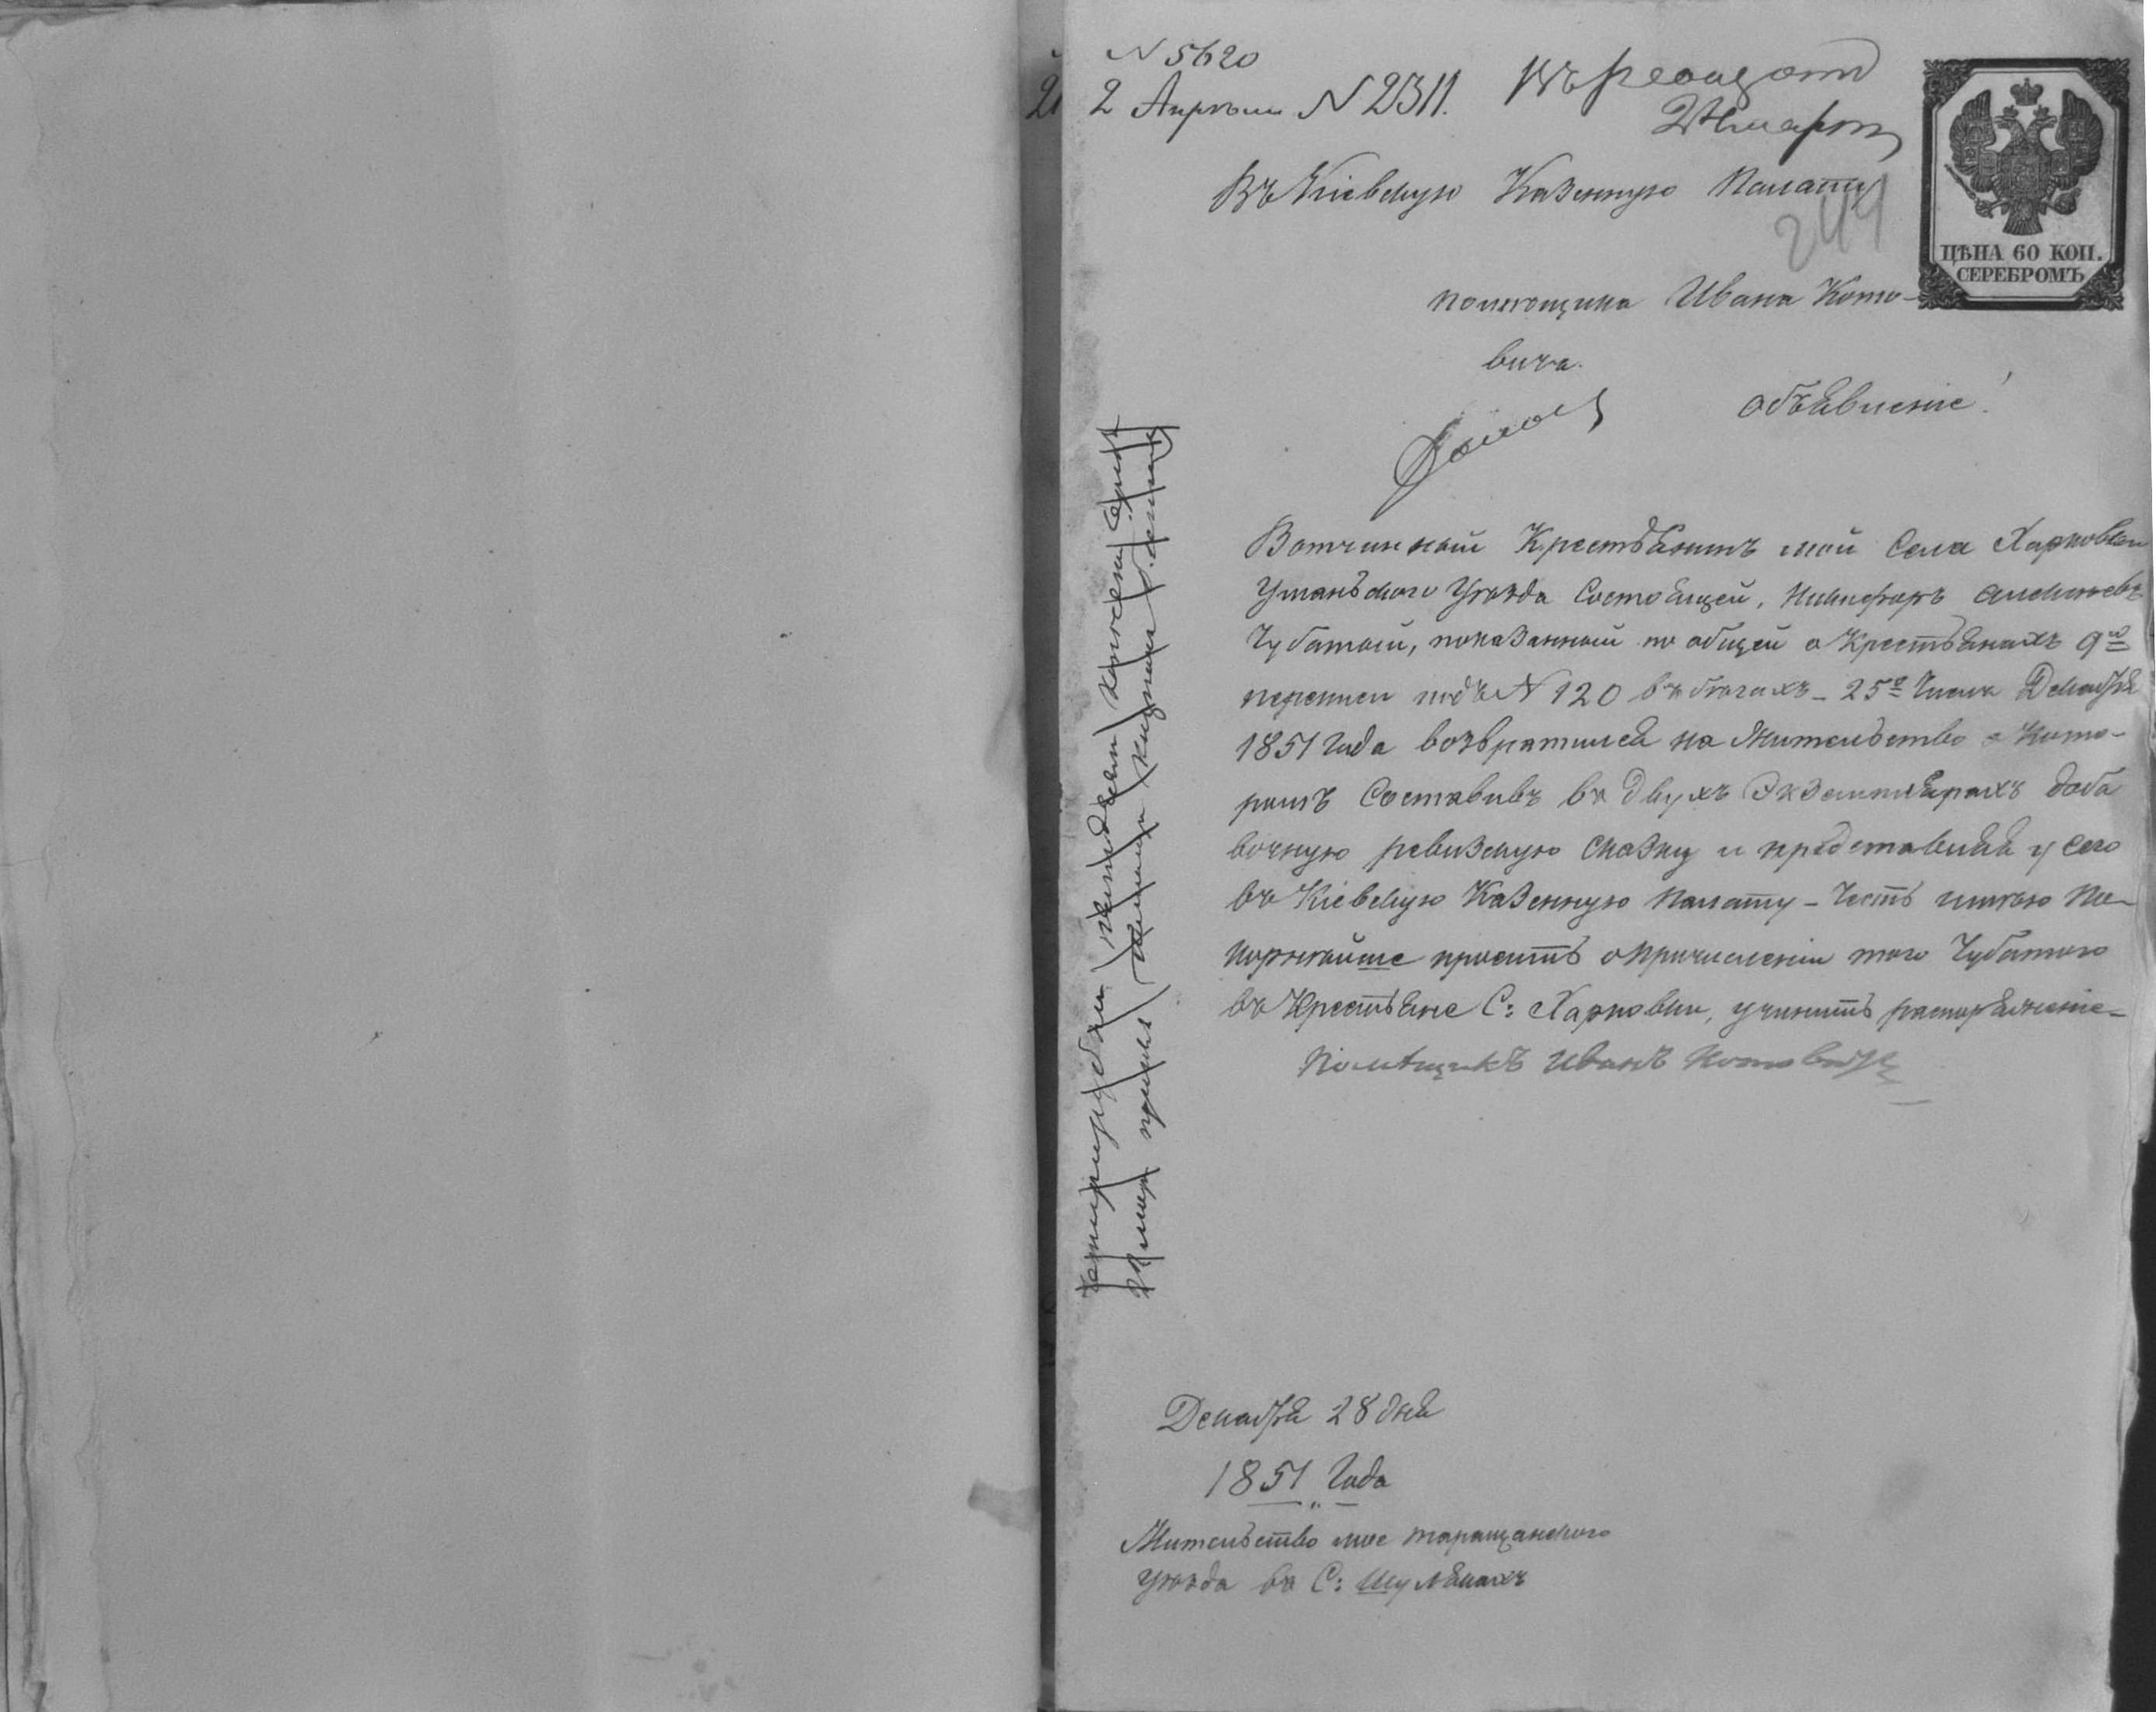 N 5620
2 Апрѣля N 2311.
Въ Кіевскую Казенную Палату
244
ЦѢНА 60 КОП.
СЕРЕБРОМЪ
помѣщика Ивана Кото-
вича.
объявленіе!
Вотчинный Крестьянинъ мой Села Харковки
Уманьского Уѣзда Состоящей, Никифоръ Алексѣевъ
Чубатый, показанный по общей о Крестьянахъ 9й
переписи подъ N 120 въ бѣгахъ - 25го Числа Декабря
1851 Года возвратился на Жительство о Кото-
ромъ Составивъ въ двухъ Экземплярахъ доба
вочную ревизкую Сказку и представляя у сего
въ Кіевскую Казенную Палату - Честь имѣю По-
корнѣйше просить о причисленіи того Чубатого
въ Крестьяне С: Харковки, учинить распоряженіе -
Помѣщикъ Иванъ Котовичъ
Декабря 28 дня
1851 Года
Жительство мое таращанского
Уѣзда въ С: Шулякахъ